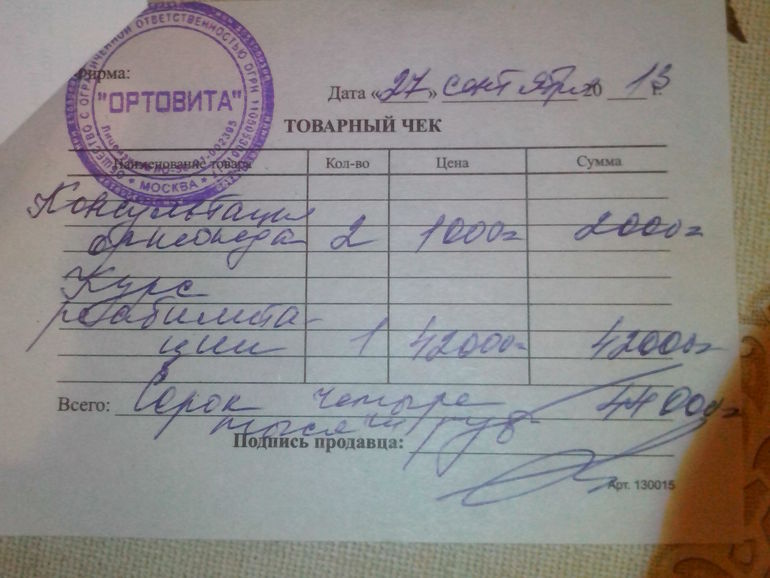 ОБЩЕСТВО С ОГРАНИЧЕННОЙ ОТВЕТСТВЕННОСТЬЮ ОГРН
"ОРТОВИТА"
* МОСКВА *
Фирма:
Дата «27» сентября 20 13 г.
ТОВАРНЫЙ ЧЕК
Наименование товара Кол-во Цена Сумма
Консультация
ортопеда 2 1000= 2000=
Курс
реабилита-
ции 1 42000= 42000=
Всего: Сорок четыре 44000=
тысячи руб
Подпись продавца:
Арт. 130015